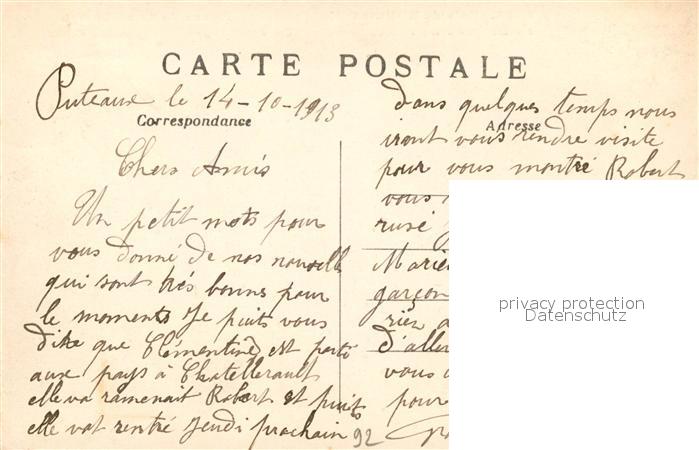 CARTE POSTALE
Puteaux le 14-10-1913
Correspondance
Chers Amis
Un petit mots pour
vous donné de nos nouvelle
qui sont trés bonns pour
le moments Je puits vous
dire que Clémentine est parti
aux pays à Chatellerault
elle va ramenait Robert et puits
elle vat rentré Jeudi prochain
92
Adresse
dans quelques temps nous
iront vous rendre visite
pour vous montré Robert
vous
rusé
Marie
garçon
rien a
d'aller
vous
pour
privacy protection
Datenschutz